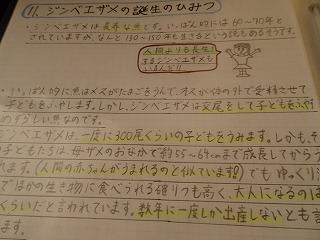 11. ジンベエザメの誕生のひみつ
・ジンベエザメは長寿な魚です。いっぱん的には60〜70年と
されていますが、なんと130〜150年も生きるという説もあるそうです。
人間よりも長生き
するジンベエザメも
いるんだ!!
・いっぱん的に魚はメスがたまごをうんで、オスが体の外で受精させて
子どもをふやします。しかし、ジンベエザメは交尾をして子どもをふやす
めずらしい魚なのです。
ジンベエザメは、一度に300尾くらいの子どもをうみます。しかも、そ
の子どもたちは母ザメのおなかで約55〜64cmまで成長してからう
れます。(人間の赤ちゃんがうまれるのと似ています!!) でもゆっくり
でほかの生き物に食べられる確りつも高く、大人になるのは
くらいだと言われています。数年に一度しか出産しないとも言
ます。